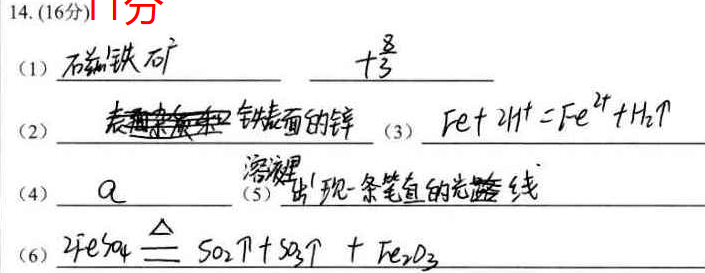 14.(16分) 11分
(1) 石磁铁矿 +8/3
(2) 铁表面的锌 (3) Fe+2H⁺=Fe²⁺+H₂↑
(4) a (5) 溶液里出现一条笔直的光线
(6) 2FeSO₄ ≜ SO₂↑+SO₃↑ + Fe₂O₃